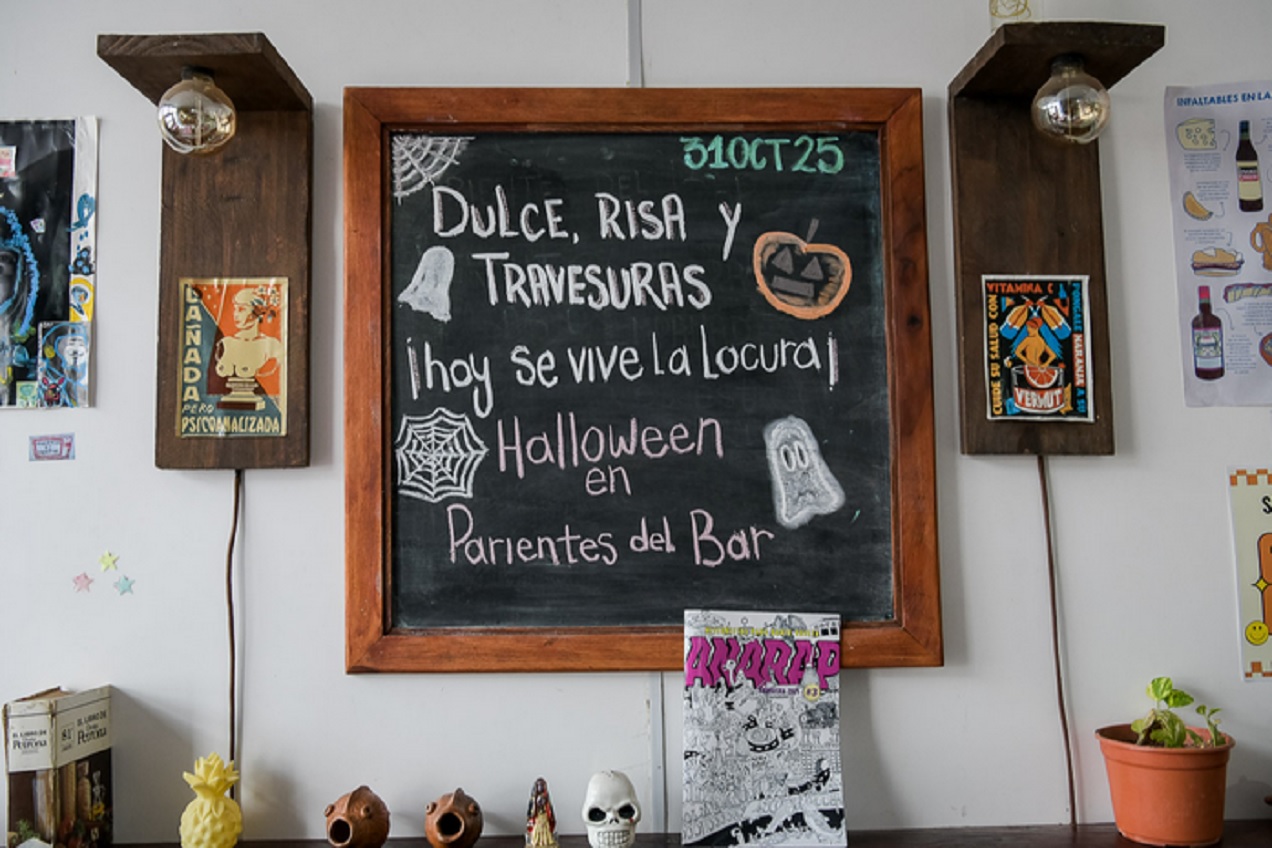 31OCT25
DULCE, RISA Y
TRAVESURAS
¡hoy se vive la Locura¡
Halloween
en
Parientes del Bar
DAÑADA
PERO
PSICOANALIZADA
VITAMINA C
CUIDE SU SALUD CON
PONGALE NARANJA A SU
VERMUT
INFALTABLES EN LA
EL LIBRO DE
Doña
PETRONA
81
EL LIBRO DE
Doña
PETRONA
#3